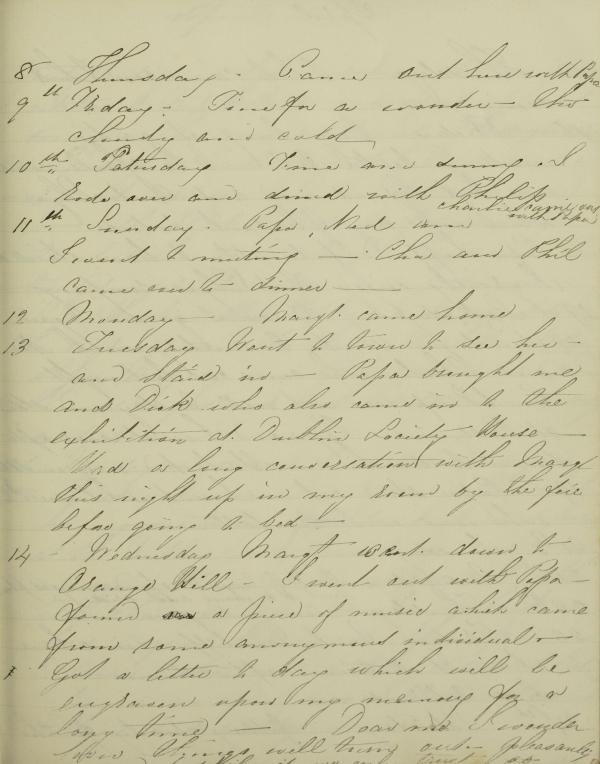 8 Thursday - Came out here with Papa
9th Friday - Fine for a wonder - tho
cloudy and cold
10th Saturday Fine and sunny - I
rode over and dined with Philip
11th Sunday - Papa, Ned and
charlie with Papa
I went to meeting — Cha and Phil
came over to dinner —
12 Monday — Margt. came home
13 Tuesday Went to town to see her -
and staid in - Papa brought me
and Dick who also came in to the
exhibition at Dublin Society House —
Had a long conversation with Margt
this night up in my room by the fire
before going to bed —
14 - Wednesday Margt went down to
Orange Hill - I went out with Papa -
found a piece of music which came
from some anonymous individual -
Got a letter to day which will be
engraven upon my memory for a
long time — Dear me I wonder
how things will turn out - pleasantly